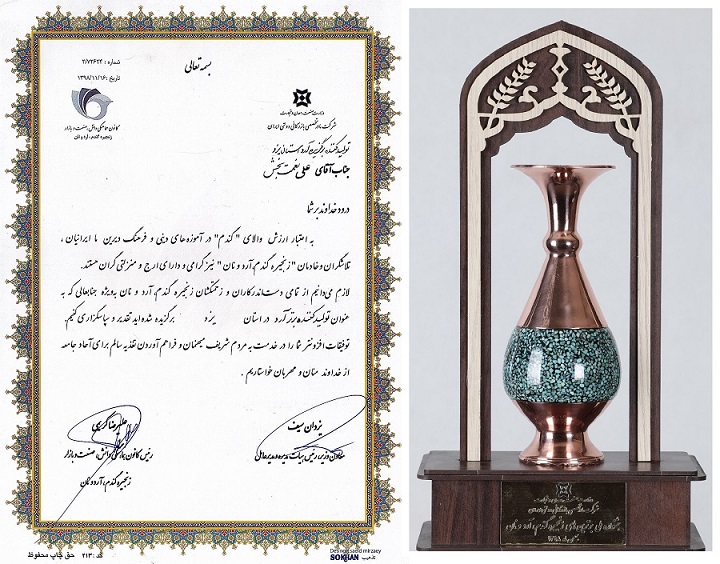 بسمه تعالی
شماره : ۲/۷۲۶۲۴
تاریخ : ۱۳۹۸/۱۱/۱۶
کانون هماهنگی دانش، صنعت و بازار
زنجیره گندم، آرد و نان
وزارت صنعت، معدن و تجارت
شرکت مادر تخصصی بازرگانی دولتی ایران
تولید کننده برگزیده آرد استان یزد
جناب آقای علی نعمت بخش
درود خداوند بر شما
به اعتبار ارزش والای "گندم" در آموزه های دینی و فرهنگ دیرین ما ایرانیان ،
تلاشگران و خادمان "زنجیره گندم، آرد و نان" نیز گرامی و دارای ارج و منزلتی گران هستند.
لازم می‌دانیم از تمامی دست اندرکاران و زحمتکشان زنجیره گندم، آرد و نان به‌ویژه جنابعالی که به
عنوان تولید کننده برتر آرد در استان یزد برگزیده شده اید تقدیر و سپاسگزاری کنیم.
توفیقات افزونتر شما را در خدمت به مردم شریف میهنمان و فراهم آوردن تغذیه سالم برای آحاد جامعه
از خداوند منان و مهربان خواستاریم .
یزدان سیف
معاون وزیر، رئیس هیات مدیره و مدیرعامل
علیرضا گریی
رئیس کانون هماهنگی دانش، صنعت و بازار
زنجیره گندم، آرد و نان
کد: ۲۱۳ حق چاپ محفوظ
SOKHAN